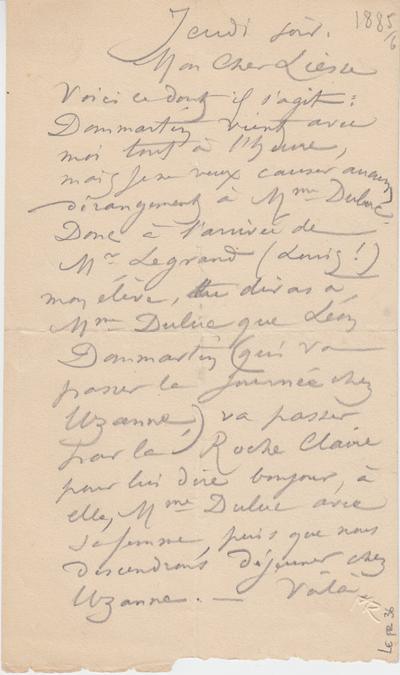 Jeudi soir.
1885/6
Mon Cher Liesse
Voici ce dont il s'agit :
Dommartin vient avec
moi tout à l'heure,
mais je ne veux causer aucun
dérangement à Mme Duluc.
Donc à l'arrivée de
Mr Legrand (Louis !)
mon élève, tu diras à
Mme Duluc que Léon
Dommartin (qui va
passer la journée chez
Uzanne) va passer
par la Roche Claire
pour lui dire bonjour, à
elle, Mme Duluc avec
sa femme puis que nous
descendrons déjeuner chez
Uzanne. — Voilà
LE FR 36